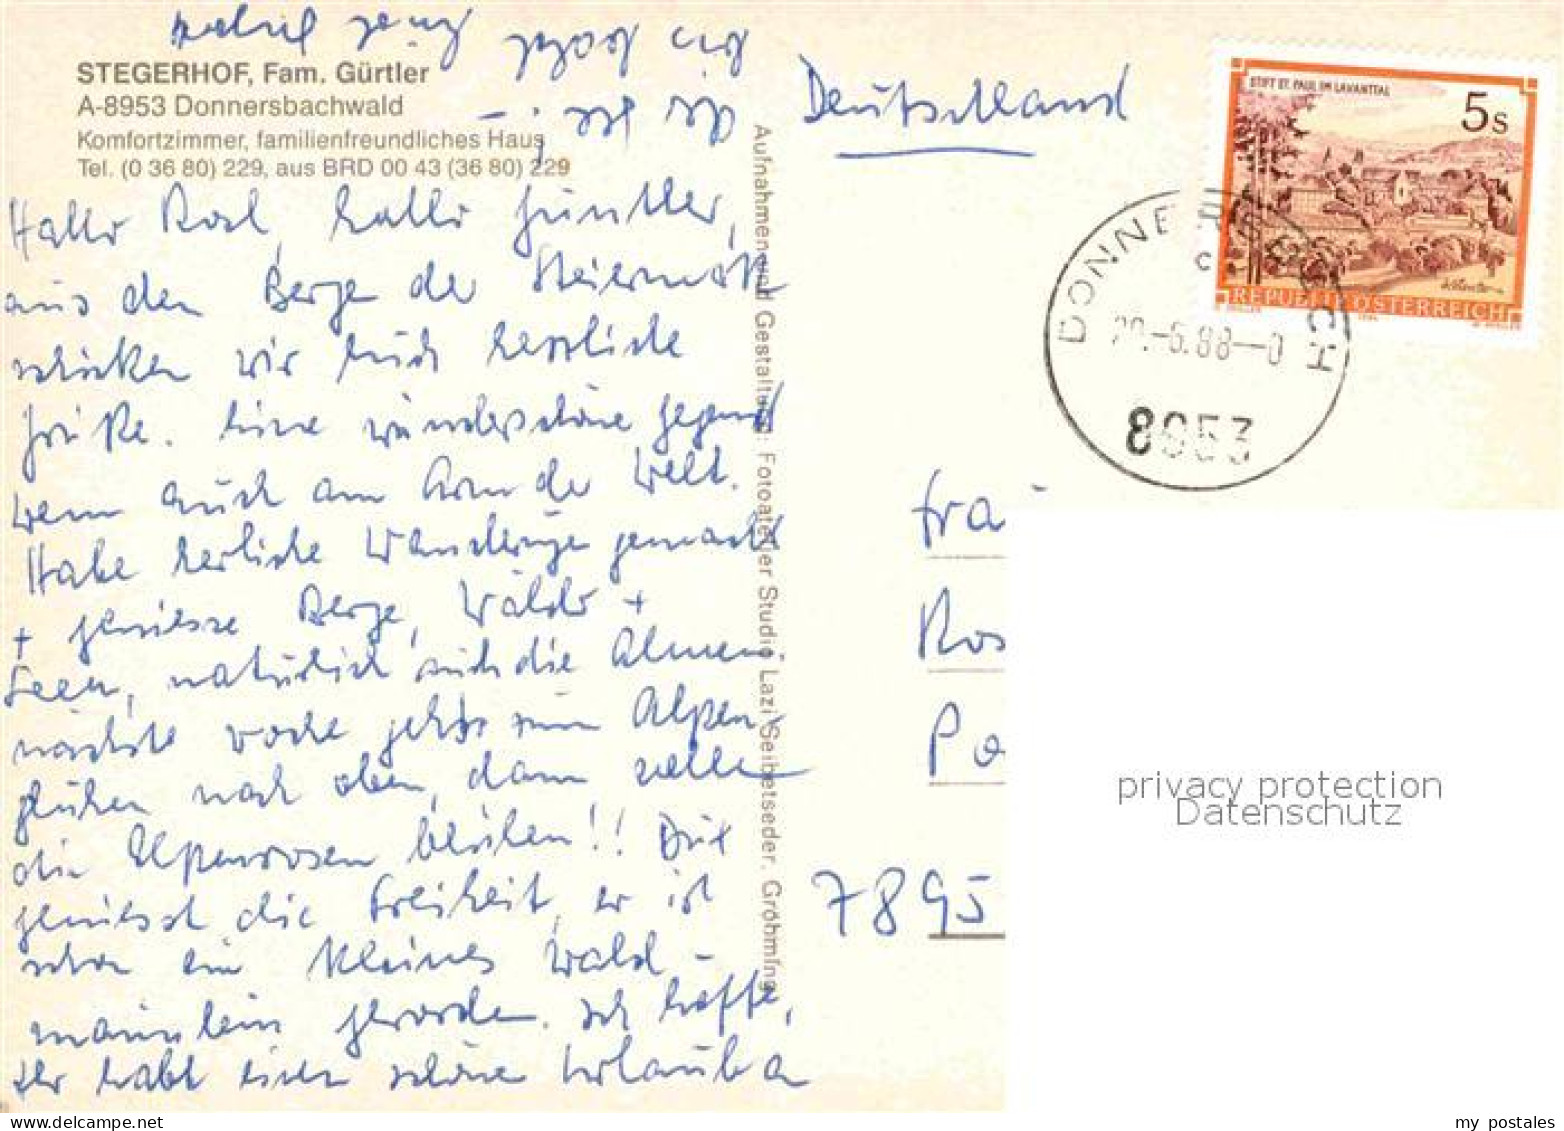 STEGERHOF, Fam. Gürtler
A-8953 Donnersbachwald
Komfortzimmer, familienfreundliches Haus
Tel. (0 36 80) 229, aus BRD 00 43 (36 80) 229
Hallo Rosl, hallo Günther,
aus den Berge der Steiermark
schicken wir Euch herzliche
Grüße. Eine wunderschöne Gegend
wenn auch am Arm der Welt.
Habe herliche Wanderunge gemacht
+ geniesse Berge, Wälder +
Seen, natürlich auch die Almen
nächste Woche gehts zum Alpen-
glühen nach oben, dann sollen
die Alpenrosen blühen!!
geniesst die Freiheit, er ist
schon ein kleines Wald-
männlein geworden. Ich hoffe,
Ihr habt einen schöne Urlaub
Aufnahmen und Gestaltung: Fotoatelier Studio Lazi Seibetseder, Gröbming
Deutschland
STIFT ST. PAUL IM LAVANTTAL
5s
REPUBLIK ÖSTERREICH
DONNERSBACH
8953
Fra
Ros
Po
7895
privacy protection
Datenschutz
my postales